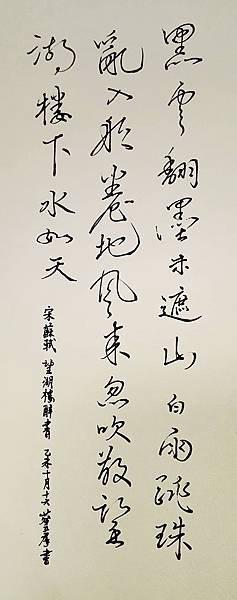 黑雲翻墨未遮山白雨跳珠
亂入船卷地風來忽吹散望
湖樓下水如天
宋蘇軾望湖樓醉書乙未十月十六 書